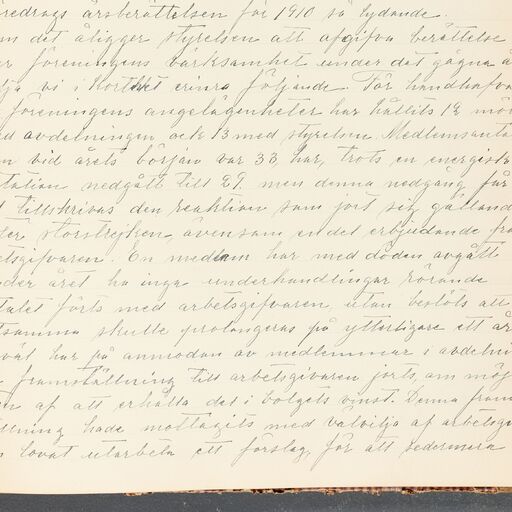 redrogs årsberättelsen för 1910 så lydande.
m det åligger styrelsen att afgifva berättelse
r föreningens värksamhet under det gågna å
lja vi i korthet erinra följande. För handhafva
föreningens angelägenheter har hållits 12 möt
d avdelningen ock 13 med styrelsen. Medlemsanta
n vid årets början var 33 har, trots en energisk
tation nedgått till 29. men denna nedgång får
t tillskrivas den reaktion som jort sig gälland
der storstrejken, ävensom en del erbjudande frå
etsgifvaren. En medlem har med döden avgått
der året ha inga underhandlingar rörande
talet förts med arbetsgifvaren, utan beslöts att
tsamma skulle prolongeras på ytterligare ett år
vät har på anmodan av medlemmar i avdelni
framställning till arbetsgivaren jorts, om möj
en af att erhålla del i bolagets vinst. Denna fram
llning hade mottagits med välvilja af arbetsgi
lovat utarbeta ett förslag, för att sedermera